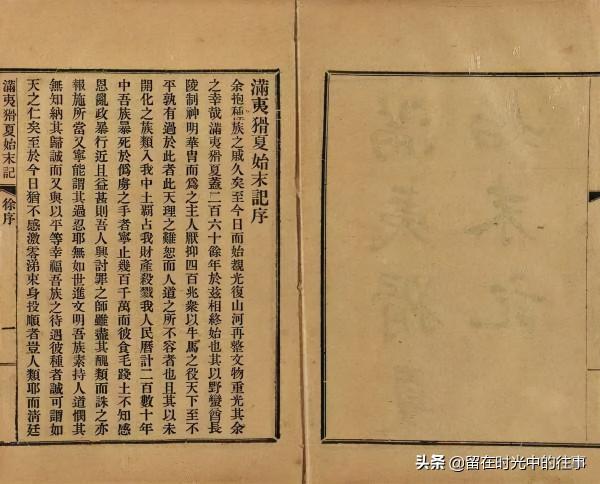 滿夷猾夏始末記序
余抱種族之戚久矣至今日而始覩光復山河再整文物重光其余
之幸哉滿夷猾夏蓋二百六十餘年於茲相終始也其以野蠻酋長
陵制神明華胄而爲之主人厭抑四百兆衆以牛馬之役天下至不
平孰有過於此者此天理之難恕而人道之所不容者也且其以未
開化之族類入我中土覇占我財產殺戮我人民曆計二百數十年
中吾族暴死於僞虜之手者寧止幾百千萬而彼食毛踐土不知感
恩亂政暴行近且益甚則吾人興討罪之師雖盡其醜類而誅之亦
報施所當又寧能謂其過忍耶無如世進文明吾族素持人道憫其
無知納其歸誠而又與以平等幸福吾族之待遇彼種者誠可謂如
天之仁矣至於今日猶不感激零涕束身投順者豈人類耶而淸廷
滿夷猾夏始末記
徐序
一
头条 @留在时光中的往事